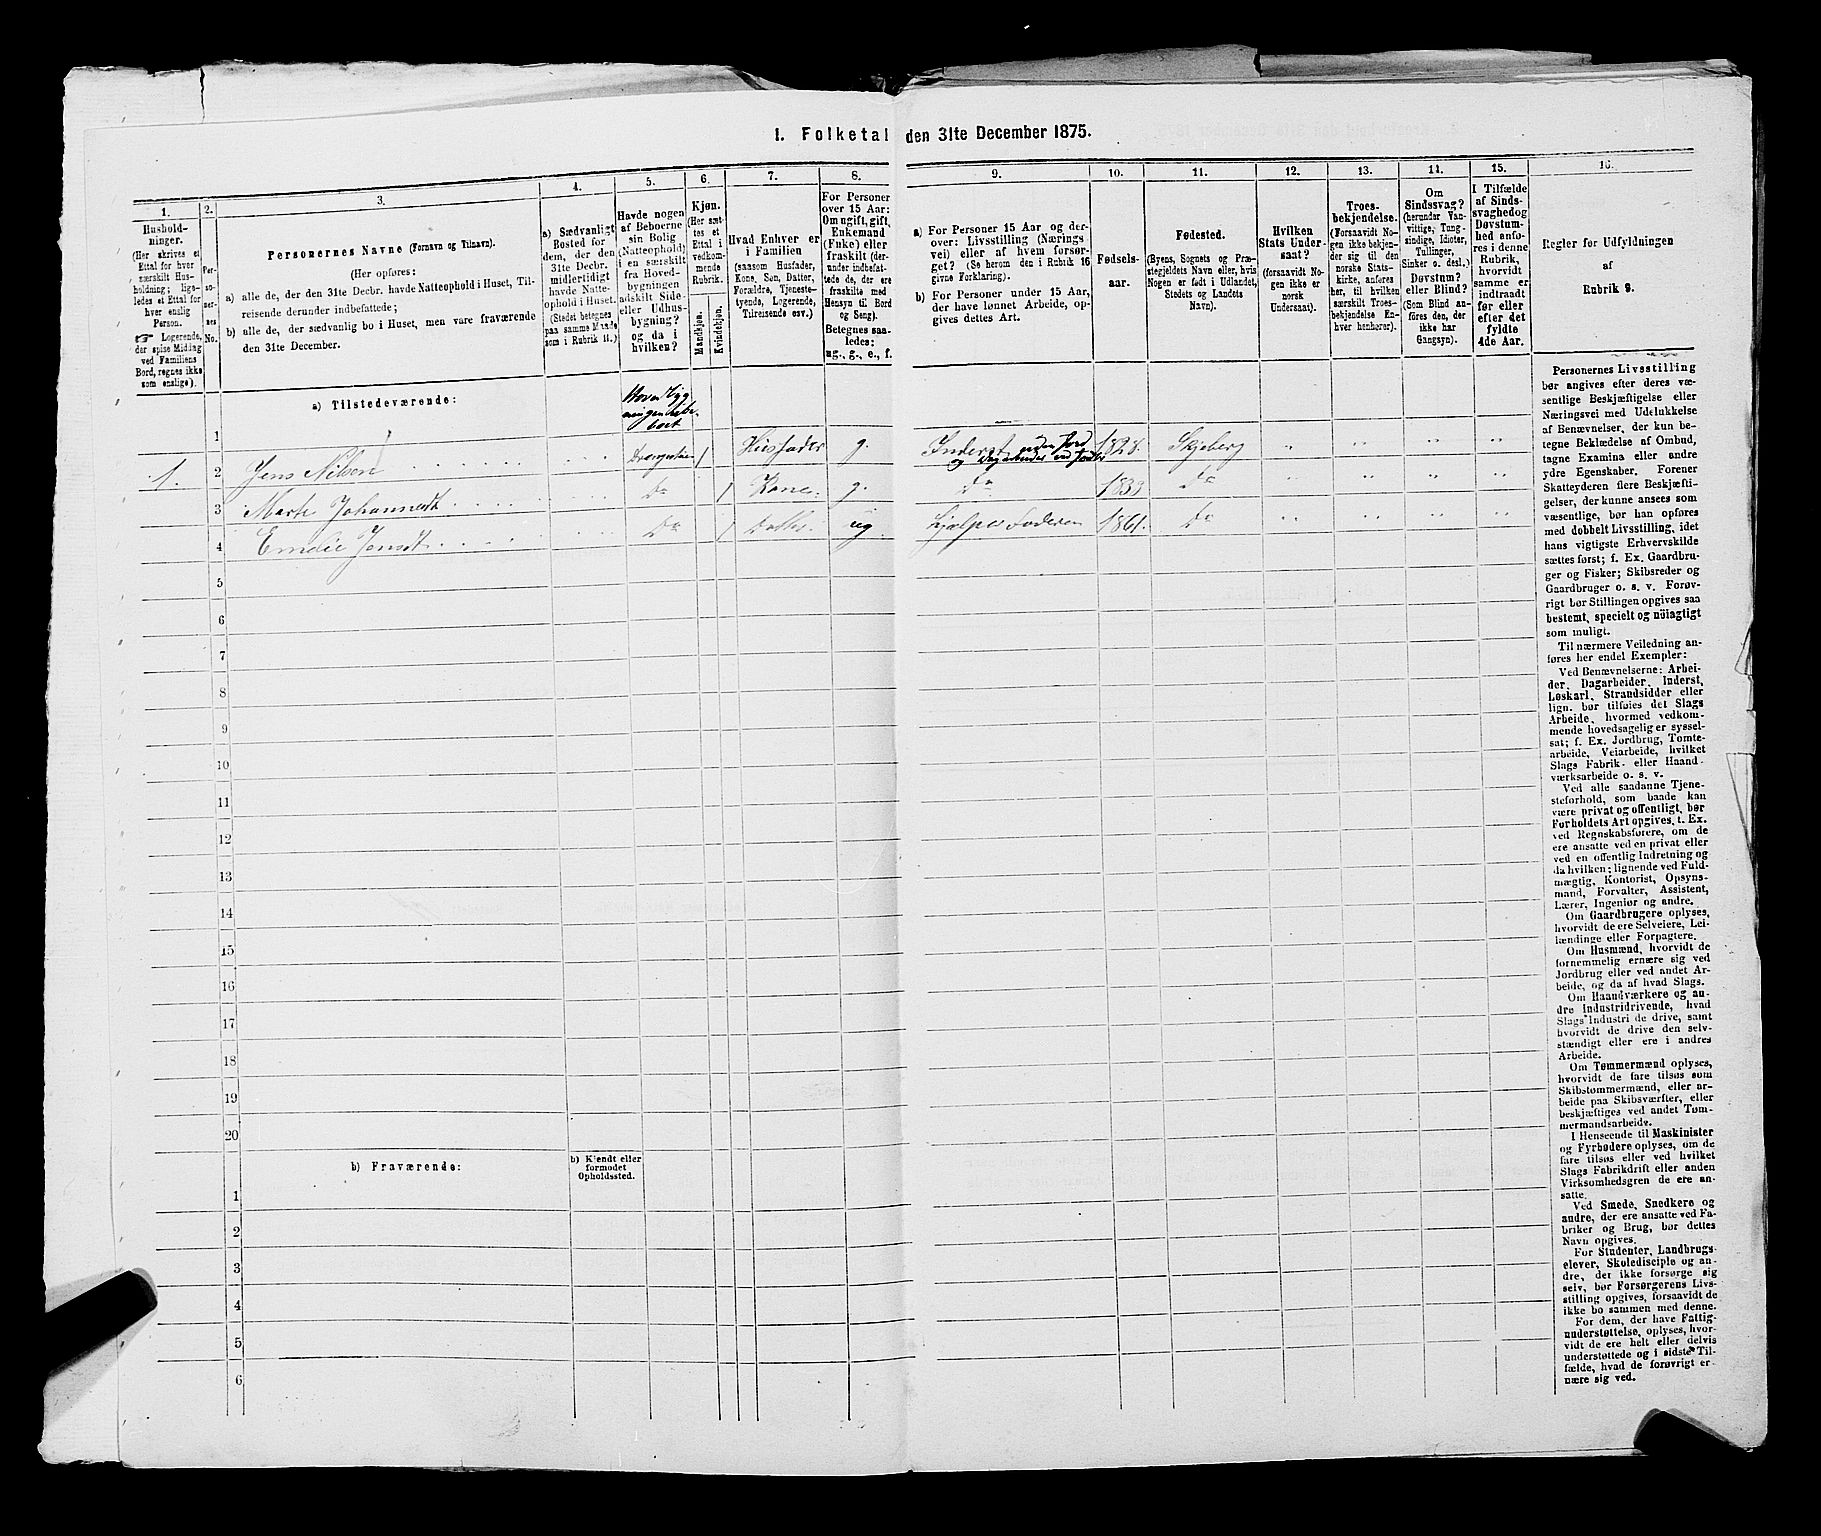 1. Folketal den 31te December 1875.
1.
2.
3.
4.
5.
6.
7.
8.
9.
10.
11.
12.
13.
14.
15.
16.
Hushold-
ninger.
(Her skrives et
Ettal for hver
særskilt Hus-
holdning; lige-
ledes et Ettal for
hver enslig
Person.
☞ Logerende,
der spise Middag
ved Familiens
Bord, regnes ikke
som enslige).
Per-
so-
ner-
nes
No.
Personernes Navne (Fornavn og Tilnavn).
(Her opføres:
a) alle de, der den 31te Decbr. havde Natteophold i Huset, Til-
reisende derunder indbefattede;
b) alle de, der sædvanlig bo i Huset, men vare fraværende
den 31te December.
a) Sædvanligt
Bosted for
dem, der den
31te Decbr.
midlertidigt
havde Natte-
ophold i Huset.
(Stedet betegnes
paa samme Maade
som i Rubrik 11.)
Havde nogen
af Beboerne
sin Bolig
(Natteophold)
i en særskilt
fra Hoved-
bygningen
adskilt Side-
eller Udhus-
bygning?
og da i
hvilken?
Kjøn.
(Her sæt-
tes et
Ettal i
vedkom-
mende
Rubrik.
Mandkjøn.
Kvindekjøn.
Hvad Enhver er
i Familien
(saasom Husfader,
Kone, Søn, Datter,
Forældre, Tjeneste-
tyende, Logerende,
Tilreisende osv.)
For Personer
over 15 Aar:
Om ugift, gift,
Enkemand
(Enke) eller
fraskilt (der-
under indbefat-
tede de, der ere
fraskilte med
Hensyn til Bord
og Seng).
Betegnes saa-
ledes:
ug., g., e., f.
a) For Personer 15 Aar og der-
over: Livsstilling (Nærings-
vei) eller af hvem forsør-
get? (Se herom den i Rubrik 16
givne Forklaring).
b) For Personer under 15 Aar,
der have lønnet Arbeide, op-
gives dettes Art.
Fødsels-
aar.
Fødested.
(Byens, Sognets og Præ-
stegjeldets Navn eller, hvis
Nogen er født i Udlandet,
Stedets og Landets
Navn).
Hvilken
Stats Under-
saat?
(forsaavidt No-
gen ikke er
norsk
Undersaat).
Troes-
bekjendelse.
(Forsaavidt No-
gen ikke bekjen-
der sig til den
norske Stats-
kirke, anføres
her, til hvilken
særskilt Troes-
bekjendelse En-
hver henhører).
Om
Sindssvag?
(herunder Van-
vittige, Tung-
sindige, Idioter,
Tullinger,
Sinker o. desl.)
Døvstum?
eller Blind?
(Som Blind an-
føres den, der
ikke har
Gangsyn).
I Tilfælde
af Sinds-
svaghed og
Døvstum-
hed anfø-
res i denne
Rubrik,
hvorvidt
samme er
indtraadt
før eller
efter det
fyldte
4de Aar.
Regler for Udfyldningen
af
Rubrik 9.
a) Tilstedeværende:
1
1. 2 Jens Nilsen 1 Husfader g. Inderst uden Jord 1828. Skjeberg " " " "
og Dagarbeider ved Jorden
3 Marte Johannesdt Do 1 Kone g. Do 1833 Do " " " "
4 Emelie Jensdt Do 1 ug Hjælper Faderen 1861. Do " " " "
5
6
7
8
9
10
11
12
13
14
15
16
17
18
19
20
b) Fraværende:
b) Kjendt eller
formodet
Opholdssted.
1
2
3
4
5
6
Personernes Livsstilling
bør angives efter deres væ-
sentlige Beskjæftigelse eller
Næringsvei med Udelukkelse
af Benævnelser, der kun be-
tegne Beklædelse af Ombud,
tagne Examina eller andre
ydre Egenskaber. Forener
Skatteyderen flere Beskjæfti-
gelser, der kunne ansees som
væsentlige, bør han opføres
med dobbelt Livsstilling, idet
hans vigtigste Erhvervskilde
sættes først; f. Ex. Gaardbru-
ger og Fisker; Skibsreder og
Gaardbruger o. s. v. Forøv-
rigt bør Stillingen opgives saa
bestemt, specielt og nöiagtigt
som muligt.
Til nærmere Veiledning an-
føres her endel Exempler:
Ved Benævnelserne: Arbei-
der, Dagarbeider, Inderst,
Løskarl, Strandsidder eller
lign. bør tilføies det Slags
Arbeide, hvormed vedkom-
mende hovedsagelig er syssel-
sat; f. Ex. Jordbrug, Tomte-
arbeide, Veiarbeide, hvilket
Slags Fabrik- eller Haand-
værksarbeide o. s. v.
Ved alle saadanne Tjene-
steforhold, som baade kan
være privat og offentligt, bør
Forholdets Art opgives, t. Ex.
ved Regnskabsførere, om de
ere ansatte ved en privat eller
ved en offentlig Indretning og
da hvilken; lignende ved Fuld-
mægtig, Kontorist, Opsyns-
mand, Forvalter, Assistent,
Lærer, Ingeniør og andre.
Om Gaardbrugere oplyses,
hvorvidt de ere Selveiere, Lei-
lændinge eller Forpagtere.
Om Husmænd, hvorvidt de
fornemmelig ernære sig ved
Jordbrug eller ved andet Ar-
beide, og da af hvad Slags.
Om Haandværkere og an-
dre Industridrivende, hvad
Slags Industri de drive, samt
hvorvidt de drive den selv-
stændigt eller ere i andres
Arbeide.
Om Tømmermænd oplyses,
hvorvidt de fare tilsøs som
Skibstømmermænd, eller ar-
beide paa Skibsværfter, eller
beskjæftiges ved andet Tøm-
mermandsarbeide.
I Henseende til Maskinister
og Fyrbødere oplyses, om de
fare tilsøs eller ved hvilket
Slags Fabrikdrift eller anden
Virksomhedsgren de ere an-
satte.
Ved Smede, Snedkere og
andre, der ere ansatte ved Fa-
briker og Brug, bør dettes
Navn opgives.
For Studenter, Landbrugs-
elever, Skoledisciple og an-
dre, der ikke forsørge sig
selv, bør Forsørgerens Livs-
stilling opgives, forsaavidt de
ikke bo sammen med denne.
For dem, der have Fattig-
understøttelse, oplyses, hvor-
vidt de ere helt eller delvis
understøttede og i sidste Til-
fælde, hvad de forøvrigt er-
nære sig ved.